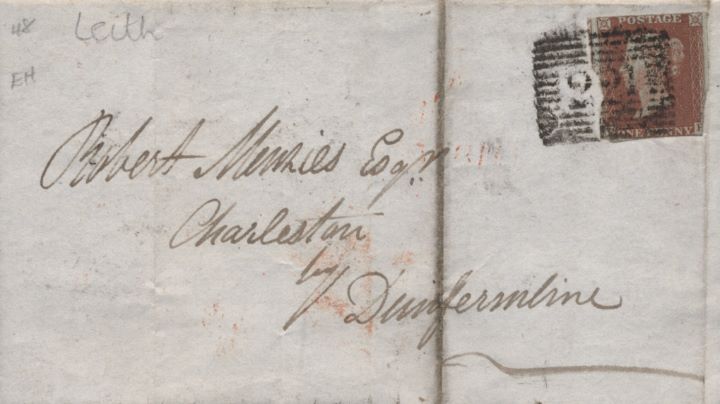 48
Leith
EH
POSTAGE
ONE PENNY
Robert Menzies Esqr
Charleston
by
Dunfermline